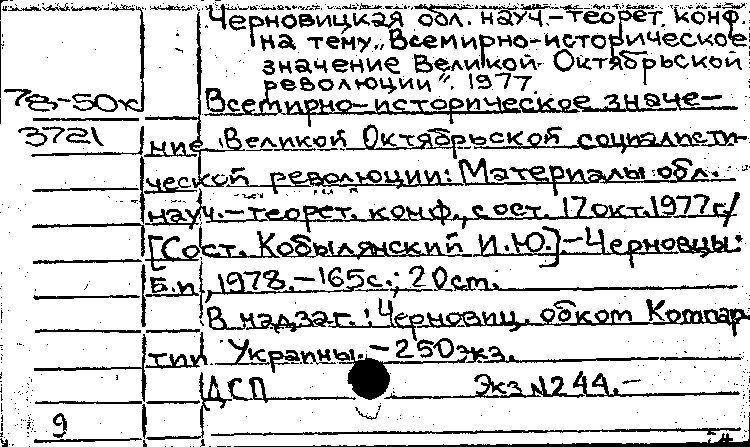 Черновицкая обл. науч.-теорет. конф.
на тему „Всемирно-историческое
значение Великой Октябрьской
революции". 1977.
78-50к Всемирно-историческое значе-
3721 ние Великой Октябрьской социалисти-
ческой революции: Материалы обл.
науч.-теорет. конф., сост. 17 окт. 1977 г./
[Сост. Кобылянский И.Ю.].-Черновцы:
Б.и., 1978.-165с.; 20см.
В надзаг.: Черновиц. обком Компар-
тии Украины.-250экз.
ДСП Экз N244.-
9